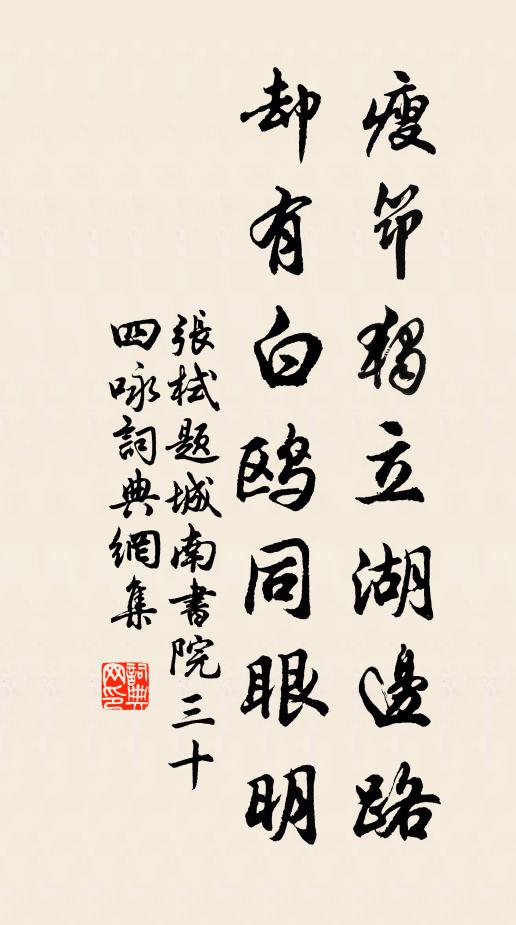 瘦筇獨立湖邊路
却有白鷗同眼明
張栻題城南書院三十
四咏詞典網集
詞典
网印